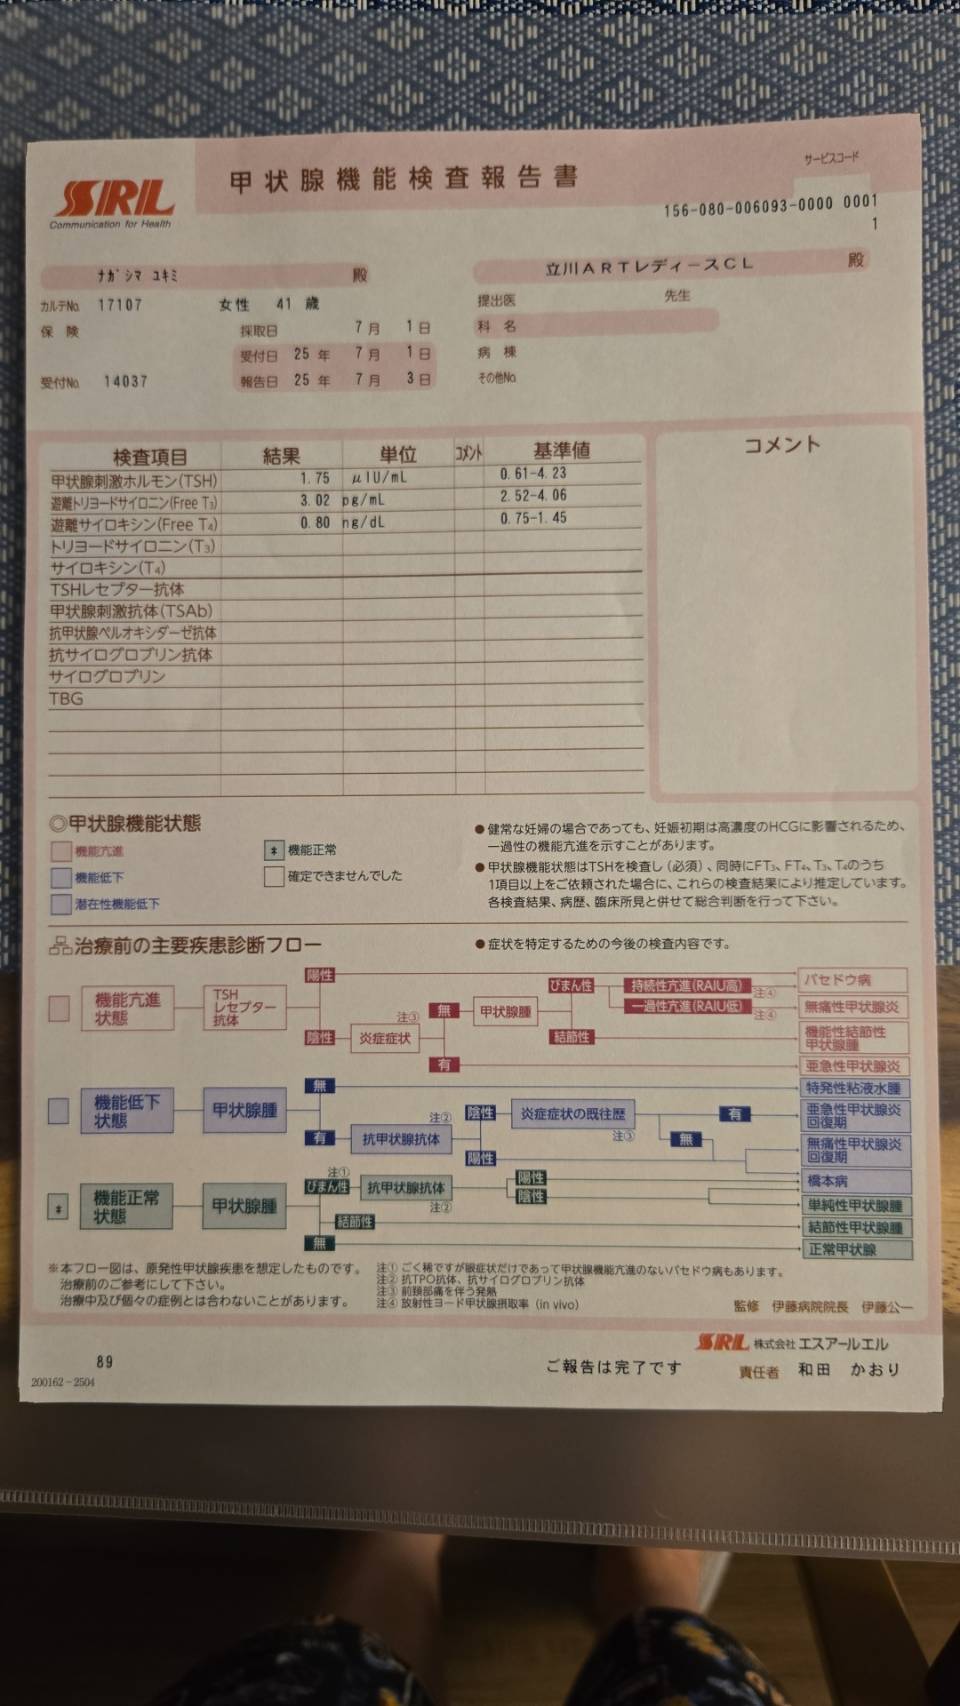 SRL
Communication for Health
甲状腺機能検査報告書
サービスコード
156-080-006093-0000 0001
1
ナガシマ ユキミ 殿
立川ARTレディースCL 殿
カルテNo. 17107 女性 41 歳
提出医 先生
保険 採取日 7月 1日
科名
受付日 25年 7月 1日
病棟
受付No. 14037 報告日 25年 7月 3日
その他No.
検査項目 結果 単位 コメント 基準値
コメント
甲状腺刺激ホルモン(TSH) 1.75 μIU/mL 0.61-4.23
遊離トリヨードサイロニン(Free T₃) 3.02 pg/mL 2.52-4.06
遊離サイロキシン(Free T₄) 0.80 ng/dL 0.75-1.45
トリヨードサイロニン(T₃)
サイロキシン(T₄)
TSHレセプター抗体
甲状腺刺激抗体(TSAb)
抗甲状腺ペルオキシダーゼ抗体
抗サイログロブリン抗体
サイログロブリン
TBG
◎甲状腺機能状態
機能亢進
機能低下
潜在性機能低下
* 機能正常
確定できませんでした
●健常な妊婦の場合であっても、妊娠初期は高濃度のHCGに影響されるため、
一過性の機能亢進を示すことがあります。
●甲状腺機能状態はTSHを検査し(必須)、同時にFT₃、FT₄、T₃、T₄のうち
1項目以上をご依頼された場合に、これらの検査結果により推定しています。
各検査結果、病歴、臨床所見と併せて総合判断を行って下さい。
治療前の主要疾患診断フロー
●症状を特定するための今後の検査内容です。
機能亢進
状態
TSH
レセプター
抗体
陽性
陰性
炎症症状
注③
無
有
甲状腺腫
びまん性
結節性
持続性亢進(RAIU高)
注④
一過性亢進(RAIU低)
注④
バセドウ病
無痛性甲状腺炎
機能性結節性
甲状腺腫
亜急性甲状腺炎
機能低下
状態
甲状腺腫
無
有
抗甲状腺抗体
注②
陰性
陽性
炎症症状の既往歴
注③
有
無
特発性粘液水腫
亜急性甲状腺炎
回復期
無痛性甲状腺炎
回復期
橋本病
*
機能正常
状態
甲状腺腫
注①
びまん性
結節性
無
抗甲状腺抗体
注②
陽性
陰性
単純性甲状腺腫
結節性甲状腺腫
正常甲状腺
※本フロー図は、原発性甲状腺疾患を想定したものです。
治療前のご参考にして下さい。
治療中及び個々の症例とは合わないことがあります。
注① ごく稀ですが眼症状だけであって甲状腺機能亢進のないバセドウ病もあります。
注② 抗TPO抗体、抗サイログロブリン抗体
注③ 前頚部痛を伴う発熱
注④ 放射性ヨード甲状腺摂取率 (in vivo)
監修 伊藤病院院長 伊藤公一
SRL 株式会社エスアールエル
89
ご報告は完了です
責任者 和田 かおり
200162-2504